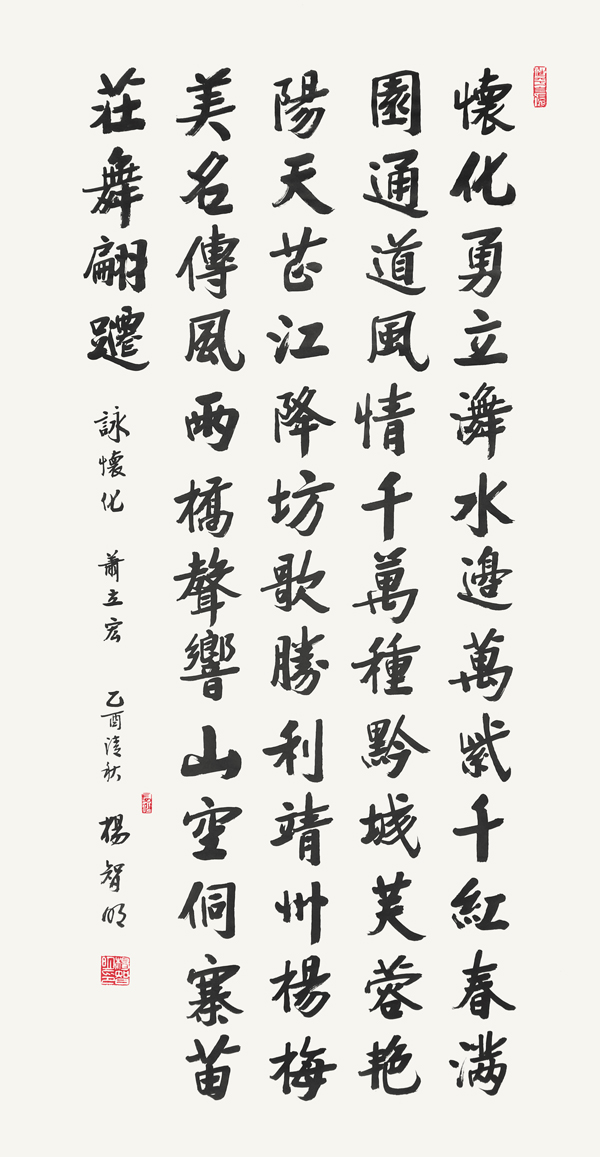 懷化勇立㵲水邊萬紫千紅春满
園通道風情千萬種黔城芙蓉艳
陽天芷江降坊歌勝利靖州楊梅
美名傳風雨橋聲響山空侗寨苗
莊舞翩躚 詠懷化 蕭立宏 乙酉清秋 楊智明